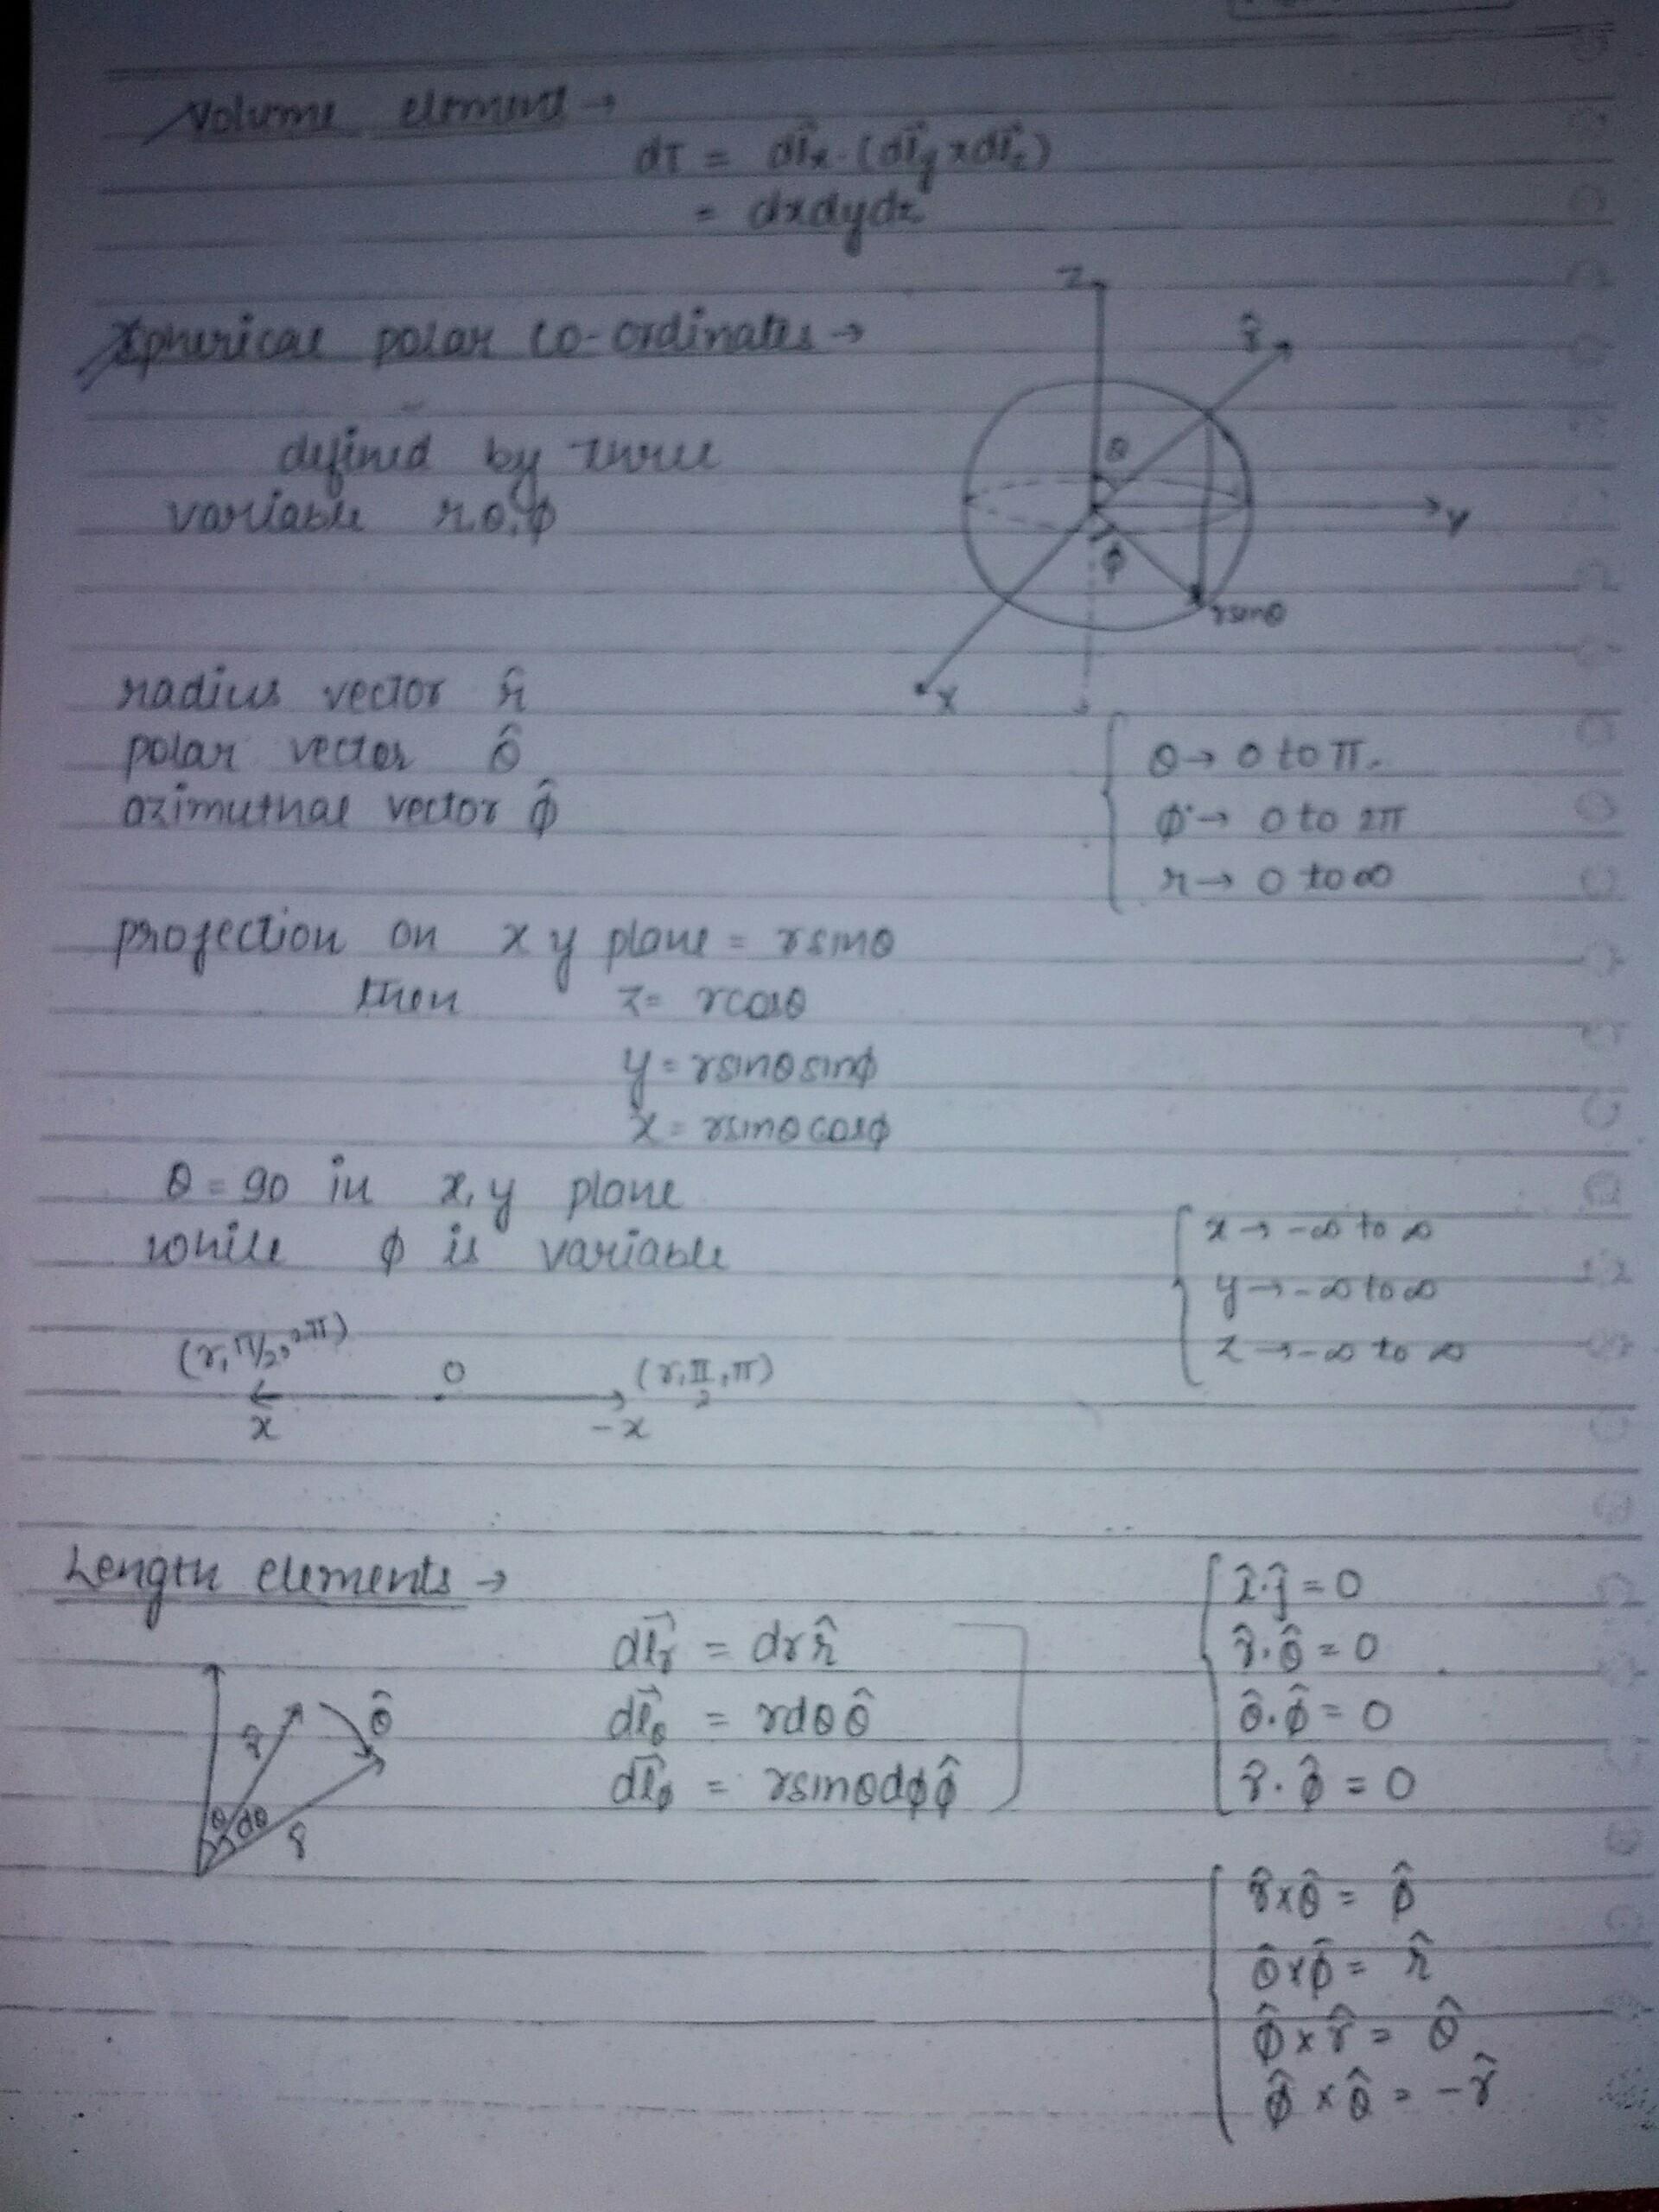 Volume element →
dτ = dl⃗x . (dl⃗y × dl⃗z)
= dxdydz
Spherical polar co-ordinates →
defined by three
variable r, θ, ϕ
Z
r̂
θ
Y
ϕ
rsinθ
X
radius vector r̂
polar vector θ̂
azimuthal vector ϕ̂
θ → 0 to π
ϕ → 0 to 2π
r → 0 to ∞
projection on x y plane = rsinθ
then z = rcosθ
y = rsinθsinϕ
x = rsinθcosϕ
θ = 90 in x, y plane
while ϕ is variable
x → -∞ to ∞
y → -∞ to ∞
z → -∞ to ∞
(r, π/2, 2π) O (r, π/2, π)
x -x
Length elements →
dl⃗r = dr r̂
dl⃗θ = rdθ θ̂
dl⃗ϕ = rsinθdϕ ϕ̂
r̂ θ̂
θ dθ
r̂
î.ĵ = 0
r̂.θ̂ = 0
θ̂.ϕ̂ = 0
r̂.ϕ̂ = 0
r̂×θ̂ = ϕ̂
θ̂×ϕ̂ = r̂
ϕ̂×r̂ = θ̂
ϕ̂×θ̂ = -r̂